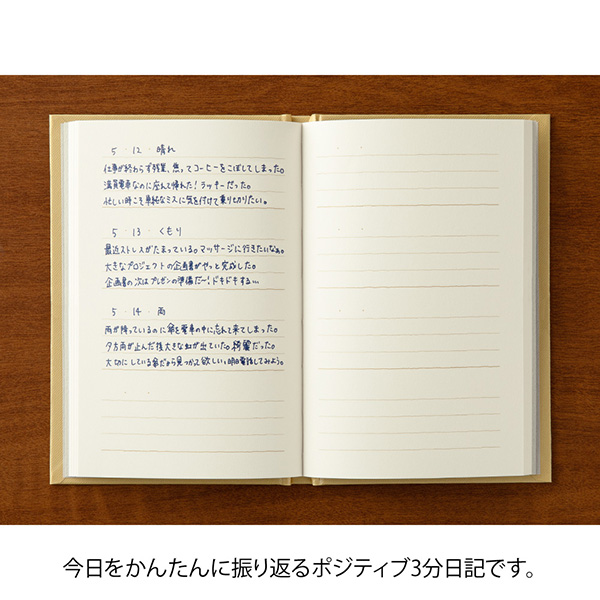 5・12・晴れ
仕事が終わらず残業、焦ってコーヒーをこぼしてしまった。
満員電車なのに座って帰れた!ラッキーだった。
忙しい時こそ単純なミスに気を付けて乗り切りたい。
5・13・くもり
最近ストレスがたまっている。マッサージに行きたいなぁ。
大きなプロジェクトの企画書がやっと完成した。
企画書の次はプレゼンの準備だ〜!ドキドキする…
5・14・雨
雨が降っているのに傘を電車の中に忘れて来てしまった。
夕方雨が止んだ後大きな虹が出ていた。綺麗だった。
大切にしている傘だから見つかって欲しい。明日電話してみよう。
今日をかんたんに振り返るポジティブ3分日記です。